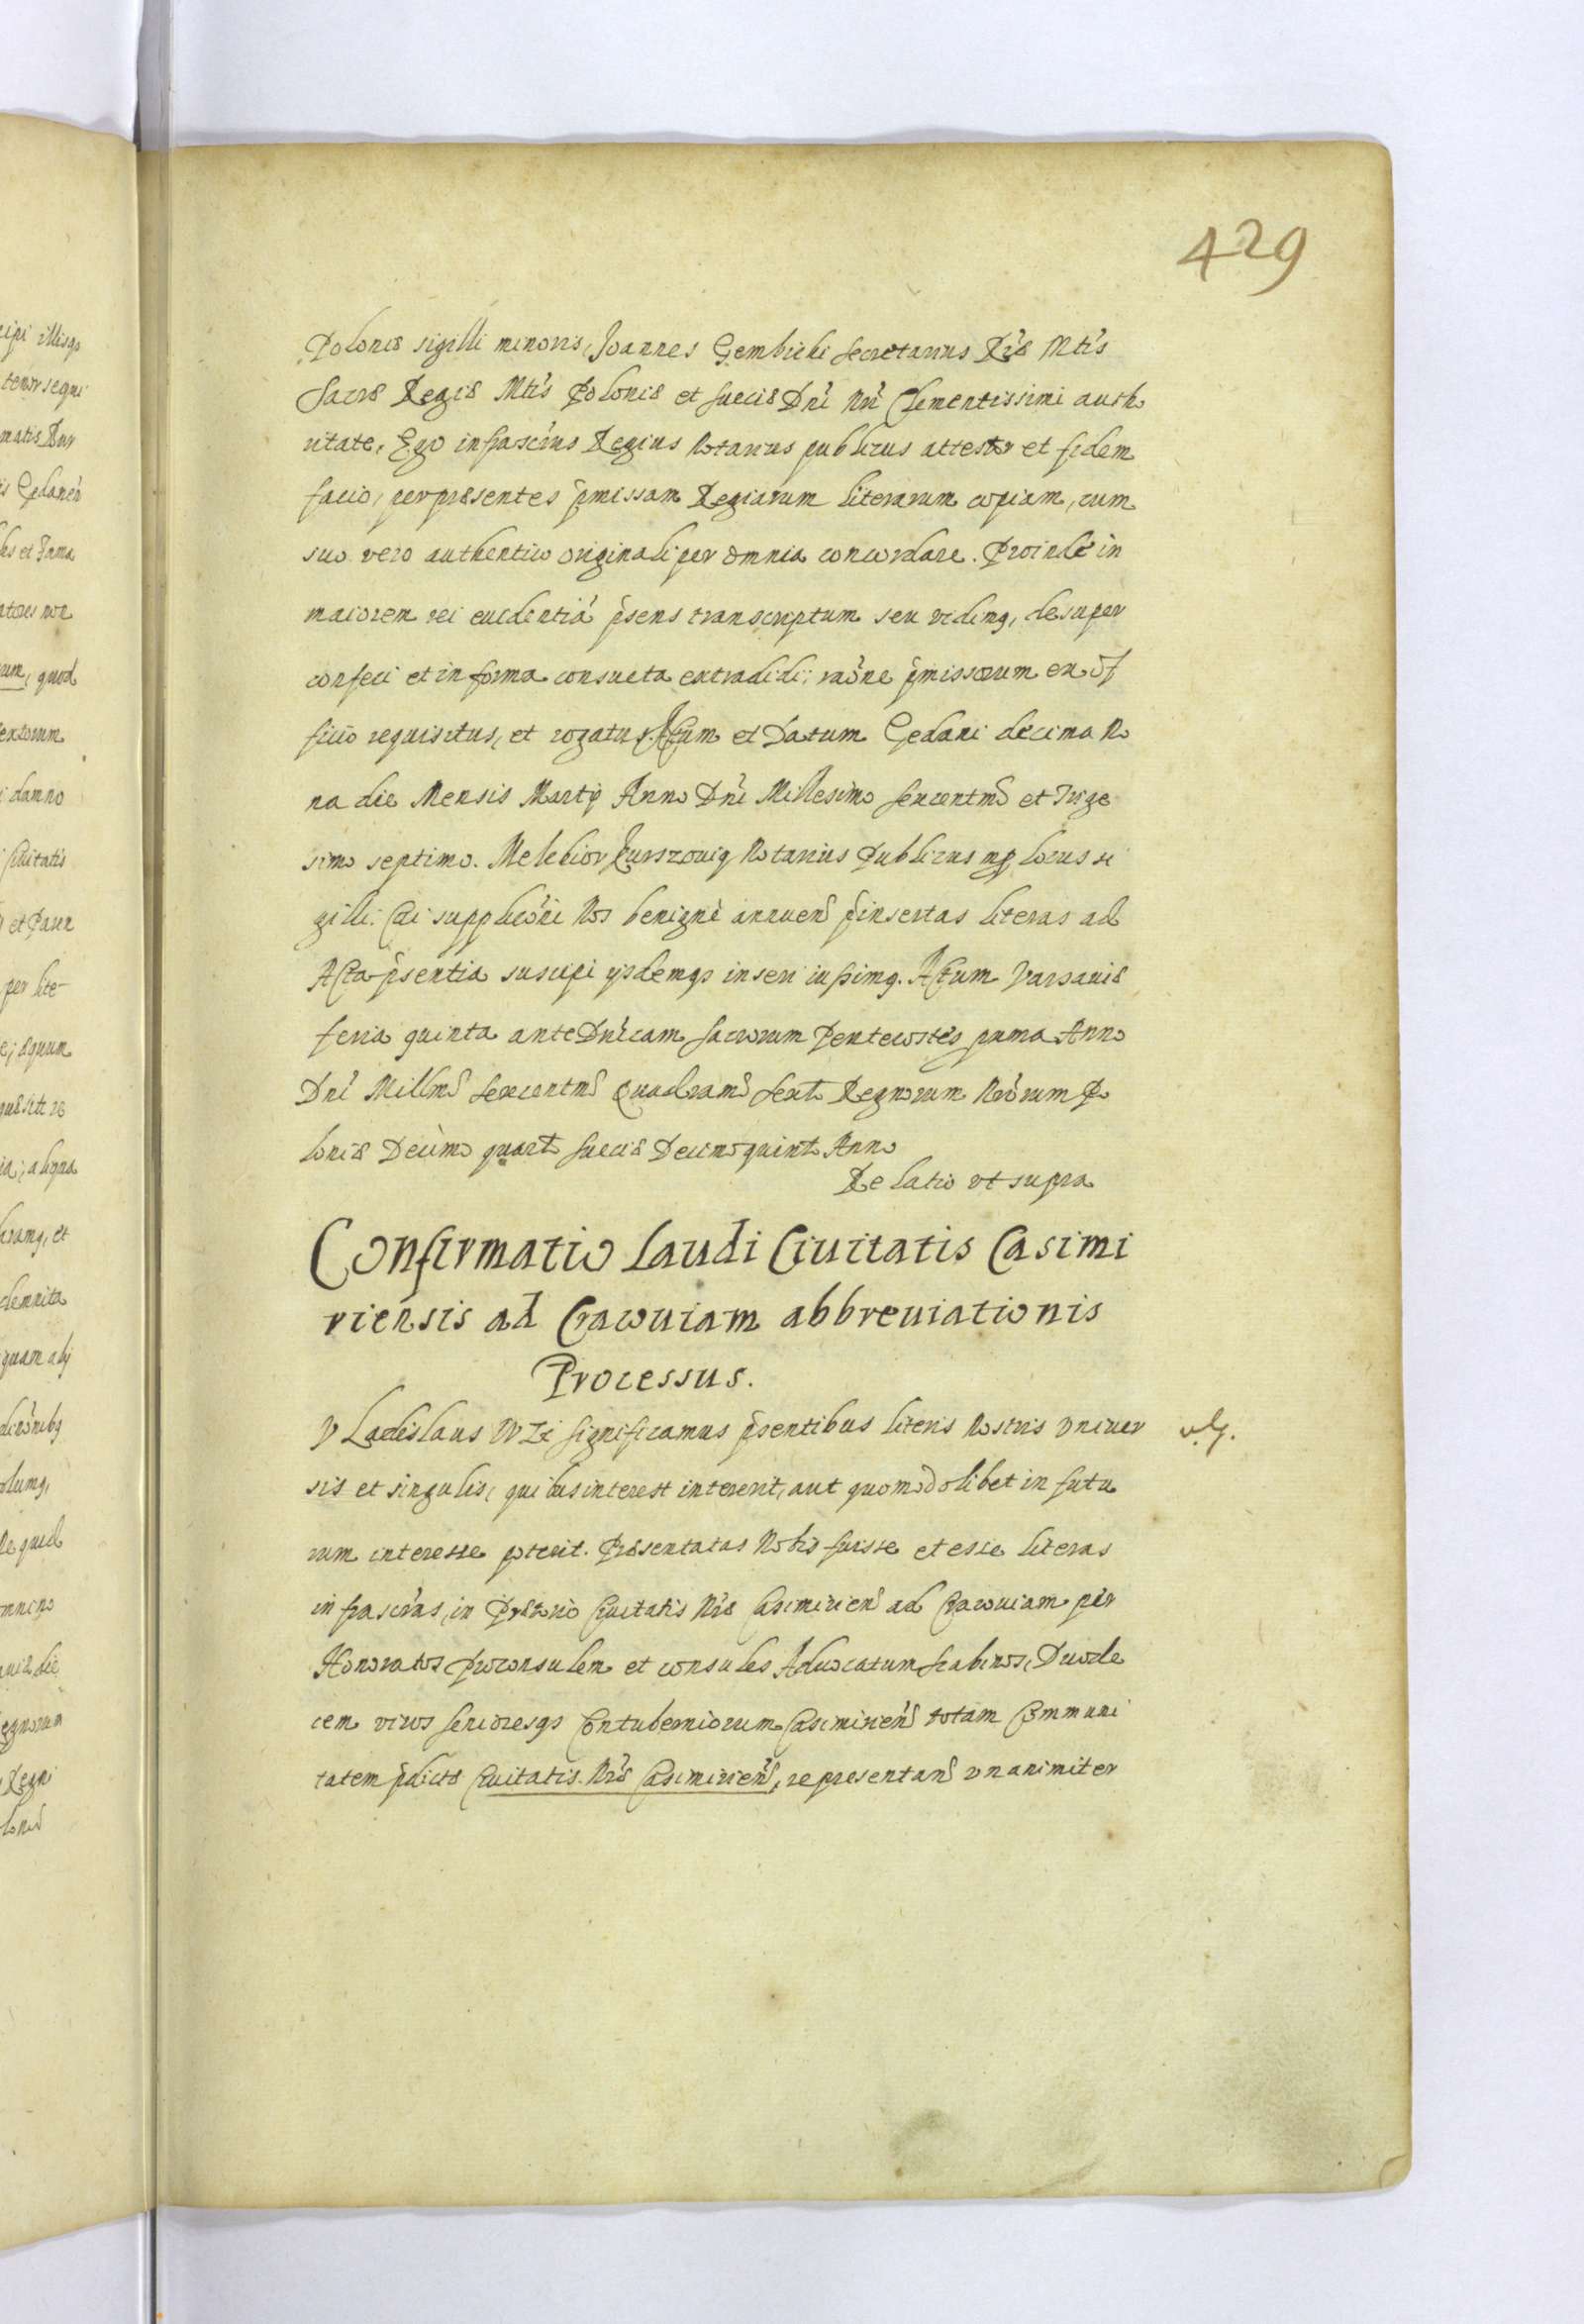 429
Poloniæ sigilli minoris, Joannes Gembicki Secretarius Ræ Mtis
Sacræ Regiæ Mtis Poloniæ et Sueciæ Dni Nri Clementissimi autho
ritate, Ego infrascrius Regius Notarius publicus attestor et fidem
facio, per præsentes pmissam Regiarum literarum copiam, cum
suo vero authentico originali per omnia concordare. Proinde in
maiorem rei euidentiã psens transcriptum seu vidimq, desuper
confeci et in forma consueta extradidi; raõne pmissorum ex of
ficio requisitus, et rogatus. Actum et Datum Gedani decima No
na die Mensis Martij Anno Dni Millesimo Sexcentmo et Trige
simo septimo. Melchior Notarius Publicus mp locus si
gilli. Cui supplicõni Nos benigne annuen pinsertas literas ad
Acta psentia suscipi ijsdemqs inseri iussimq. Actum Varsauiæ
feria quinta ante Dnicam Sacrorum Pentecostes prima Anno
Dni Millmo Sexcentmo Quadragmo Sexto Regnorum Nrorum Po
loniæ Decimo quarto Sueciæ Decimoquinto Anno
Relatio vt supra
Confirmatio Laudi Ciuitatis Casimi
riensis ad Cracouiam abbreuiationis
Processus.
Vladislaus IV Significamus psentibus literis Nostris vniuer
sis et singulis, quibus interest intererit, aut quomodolibet in futu
rum interesse poterit. Præsentatas Nobis fuisse et esse literas
infrascras, in Prætorio Ciuitatis Nræ Casimirien ad Cracouiam per
Honoratos Proconsulem et consules Aduocatum Scabinos, Duode
cem viros Senioresqs Contuberniorum Casimirien totam Communi
tatem pdictæ Ciuitatis Nræ Casimirien, representan vnanimiter